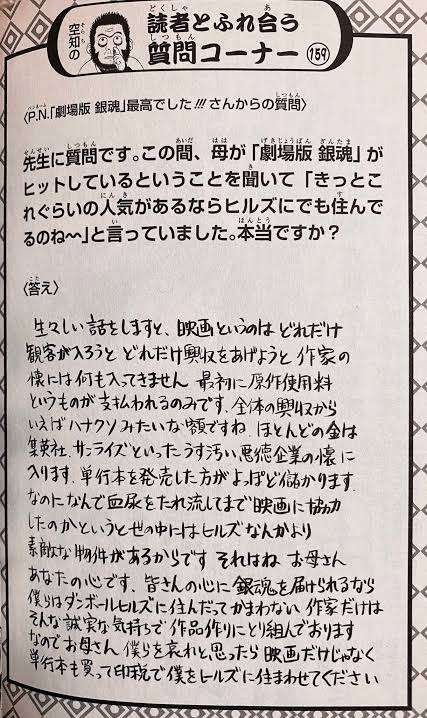 空知の
読者とふれ合う
質問コーナー 159
〈P.N.「劇場版 銀魂」最高でした!!!さんからの質問〉
先生に質問です。この間、母が「劇場版 銀魂」が
ヒットしているということを聞いて「きっとこ
れぐらいの人気があるならヒルズにでも住んで
るのね〜」と言っていました。本当ですか?
〈答え〉
生々しい話をしますと、映画というのは どれだけ
観客が入ろうと どれだけ興収をあげようと 作家の
懐には何も入ってきません 最初に原作使用料
というものが支払われるのみです。全体の興収から
いえばハナクソみたいな額ですね。ほとんどの金は
集英社、サンライズといったうす汚い悪徳企業の懐に
入ります。単行本を発売した方がよっぽど儲かります。
なのになんで血尿をたれ流してまで映画に協力
したのかというと世の中にはヒルズなんかより
素敵な物件があるからです それはね お母さん
あなたの心です、皆さんの心に銀魂を届けられるなら
僕らはダンボールヒルズに住んだってかまわない 作家だけは
そんな誠実な気持ちで作品作りにとり組んでおります
なのでお母さん 僕らを哀れと思ったら映画だけじゃなく
単行本も買って印税で僕をヒルズに住まわせてください